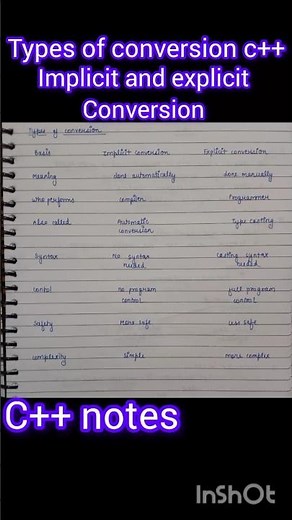 Types of conversion c++
Implicit and explicit
Conversion
Types of conversion
Basic Implicit conversion Explicit conversion
meaning done automatically done manually
who performs compiler Programmer
Also called Automatic conversion Type casting
Syntax no syntax needed casting syntax needed
control no program control full program control
Safety More safe less safe
complexity Simple more complex
C++ notes
InShOt